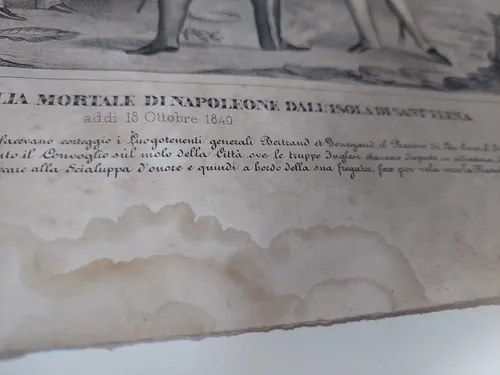 LIA MORTALE DI NAPOLEONE DALL'ISOLA DI SANT'ELENA
addì 15 Ottobre 1840
facevano corteggio i Luogotenenti generali Bertrand et Gourgaud, il Barone di Las
to il Convoglio sul molo della Città ove le truppe Inglesi stavano disposte in
care alla Scialuppa d'onore e quindi a bordo della sua fregata, fece per vela